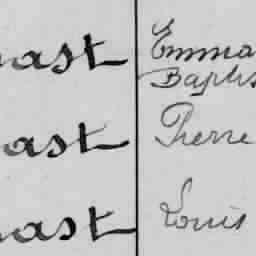 nast Emma
Baptis
nast Pierre
nast Louis